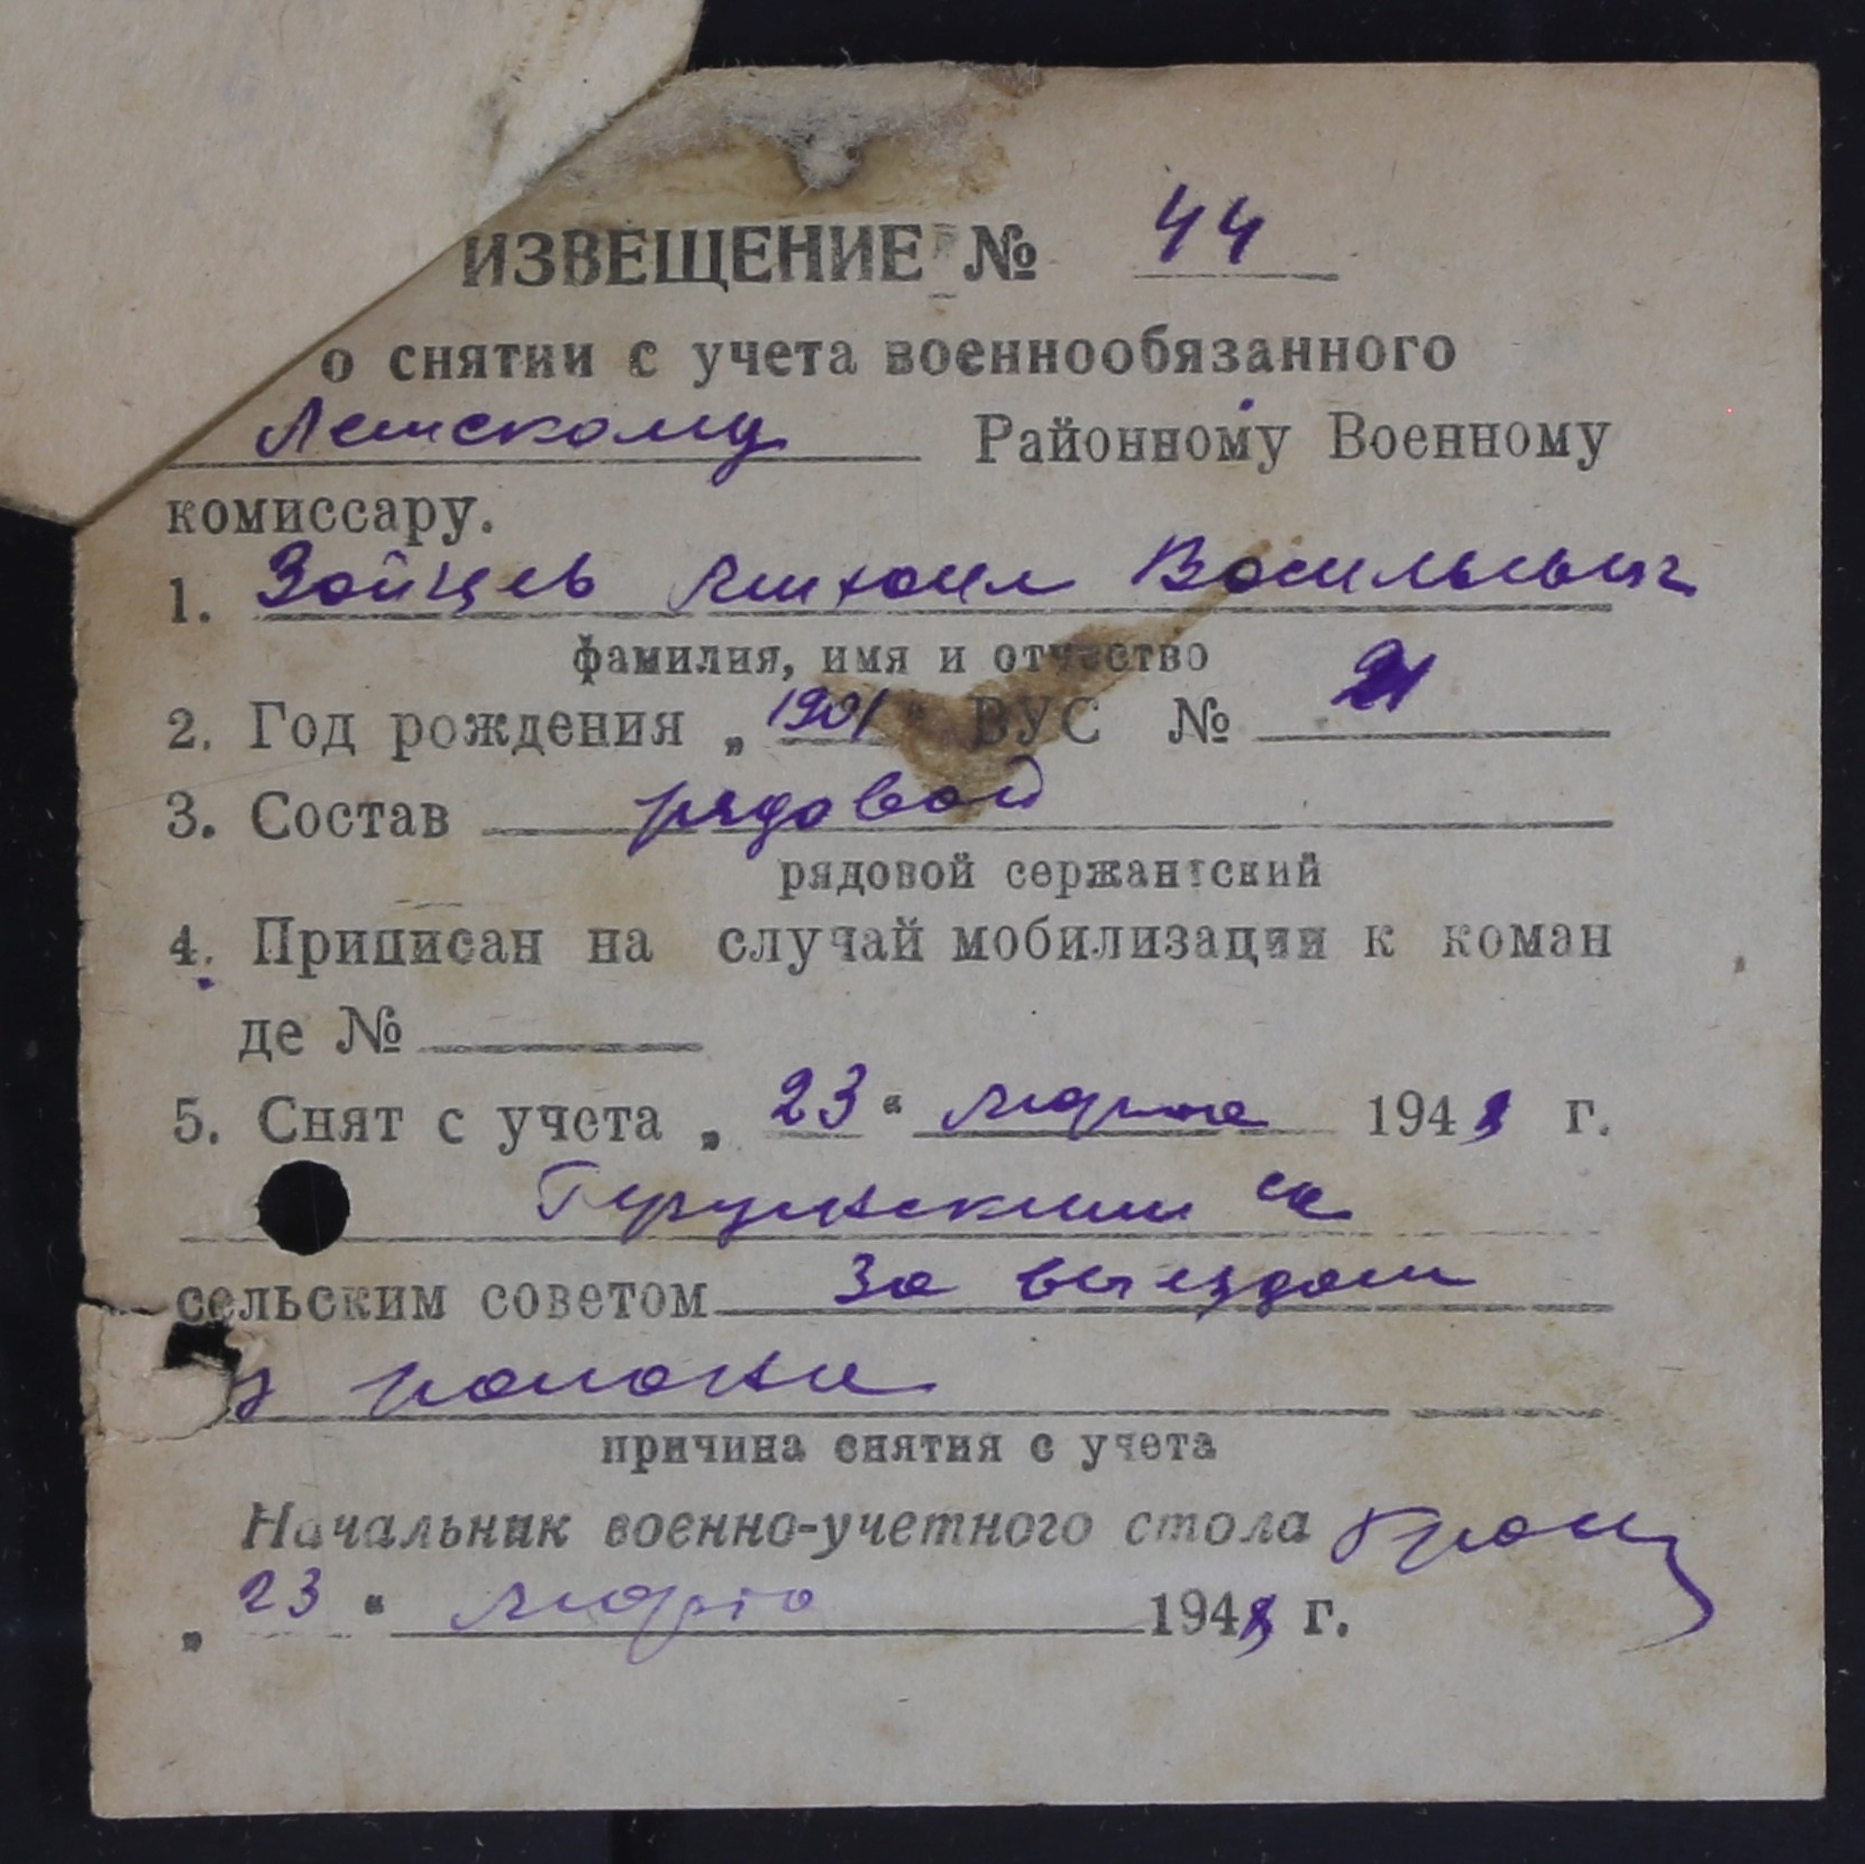 ИЗВЕЩЕНИЕ № 44
о снятии с учета военнообязанного
Летскому Районному Военному
комиссару.
1. Зайцев Михаил Васильевич
фамилия, имя и отчество
2. Год рождения „ 1901 " ВУС № 21
3. Состав рядовой
рядовой сержантский
4. Приписан на случай мобилизации к коман
де №
5. Снят с учета „ 23 " марта 194 г.
сельским советом За выездом
района
причина снятия с учета
Начальник военно-учетного стола
„ 23 " марта 194 г.